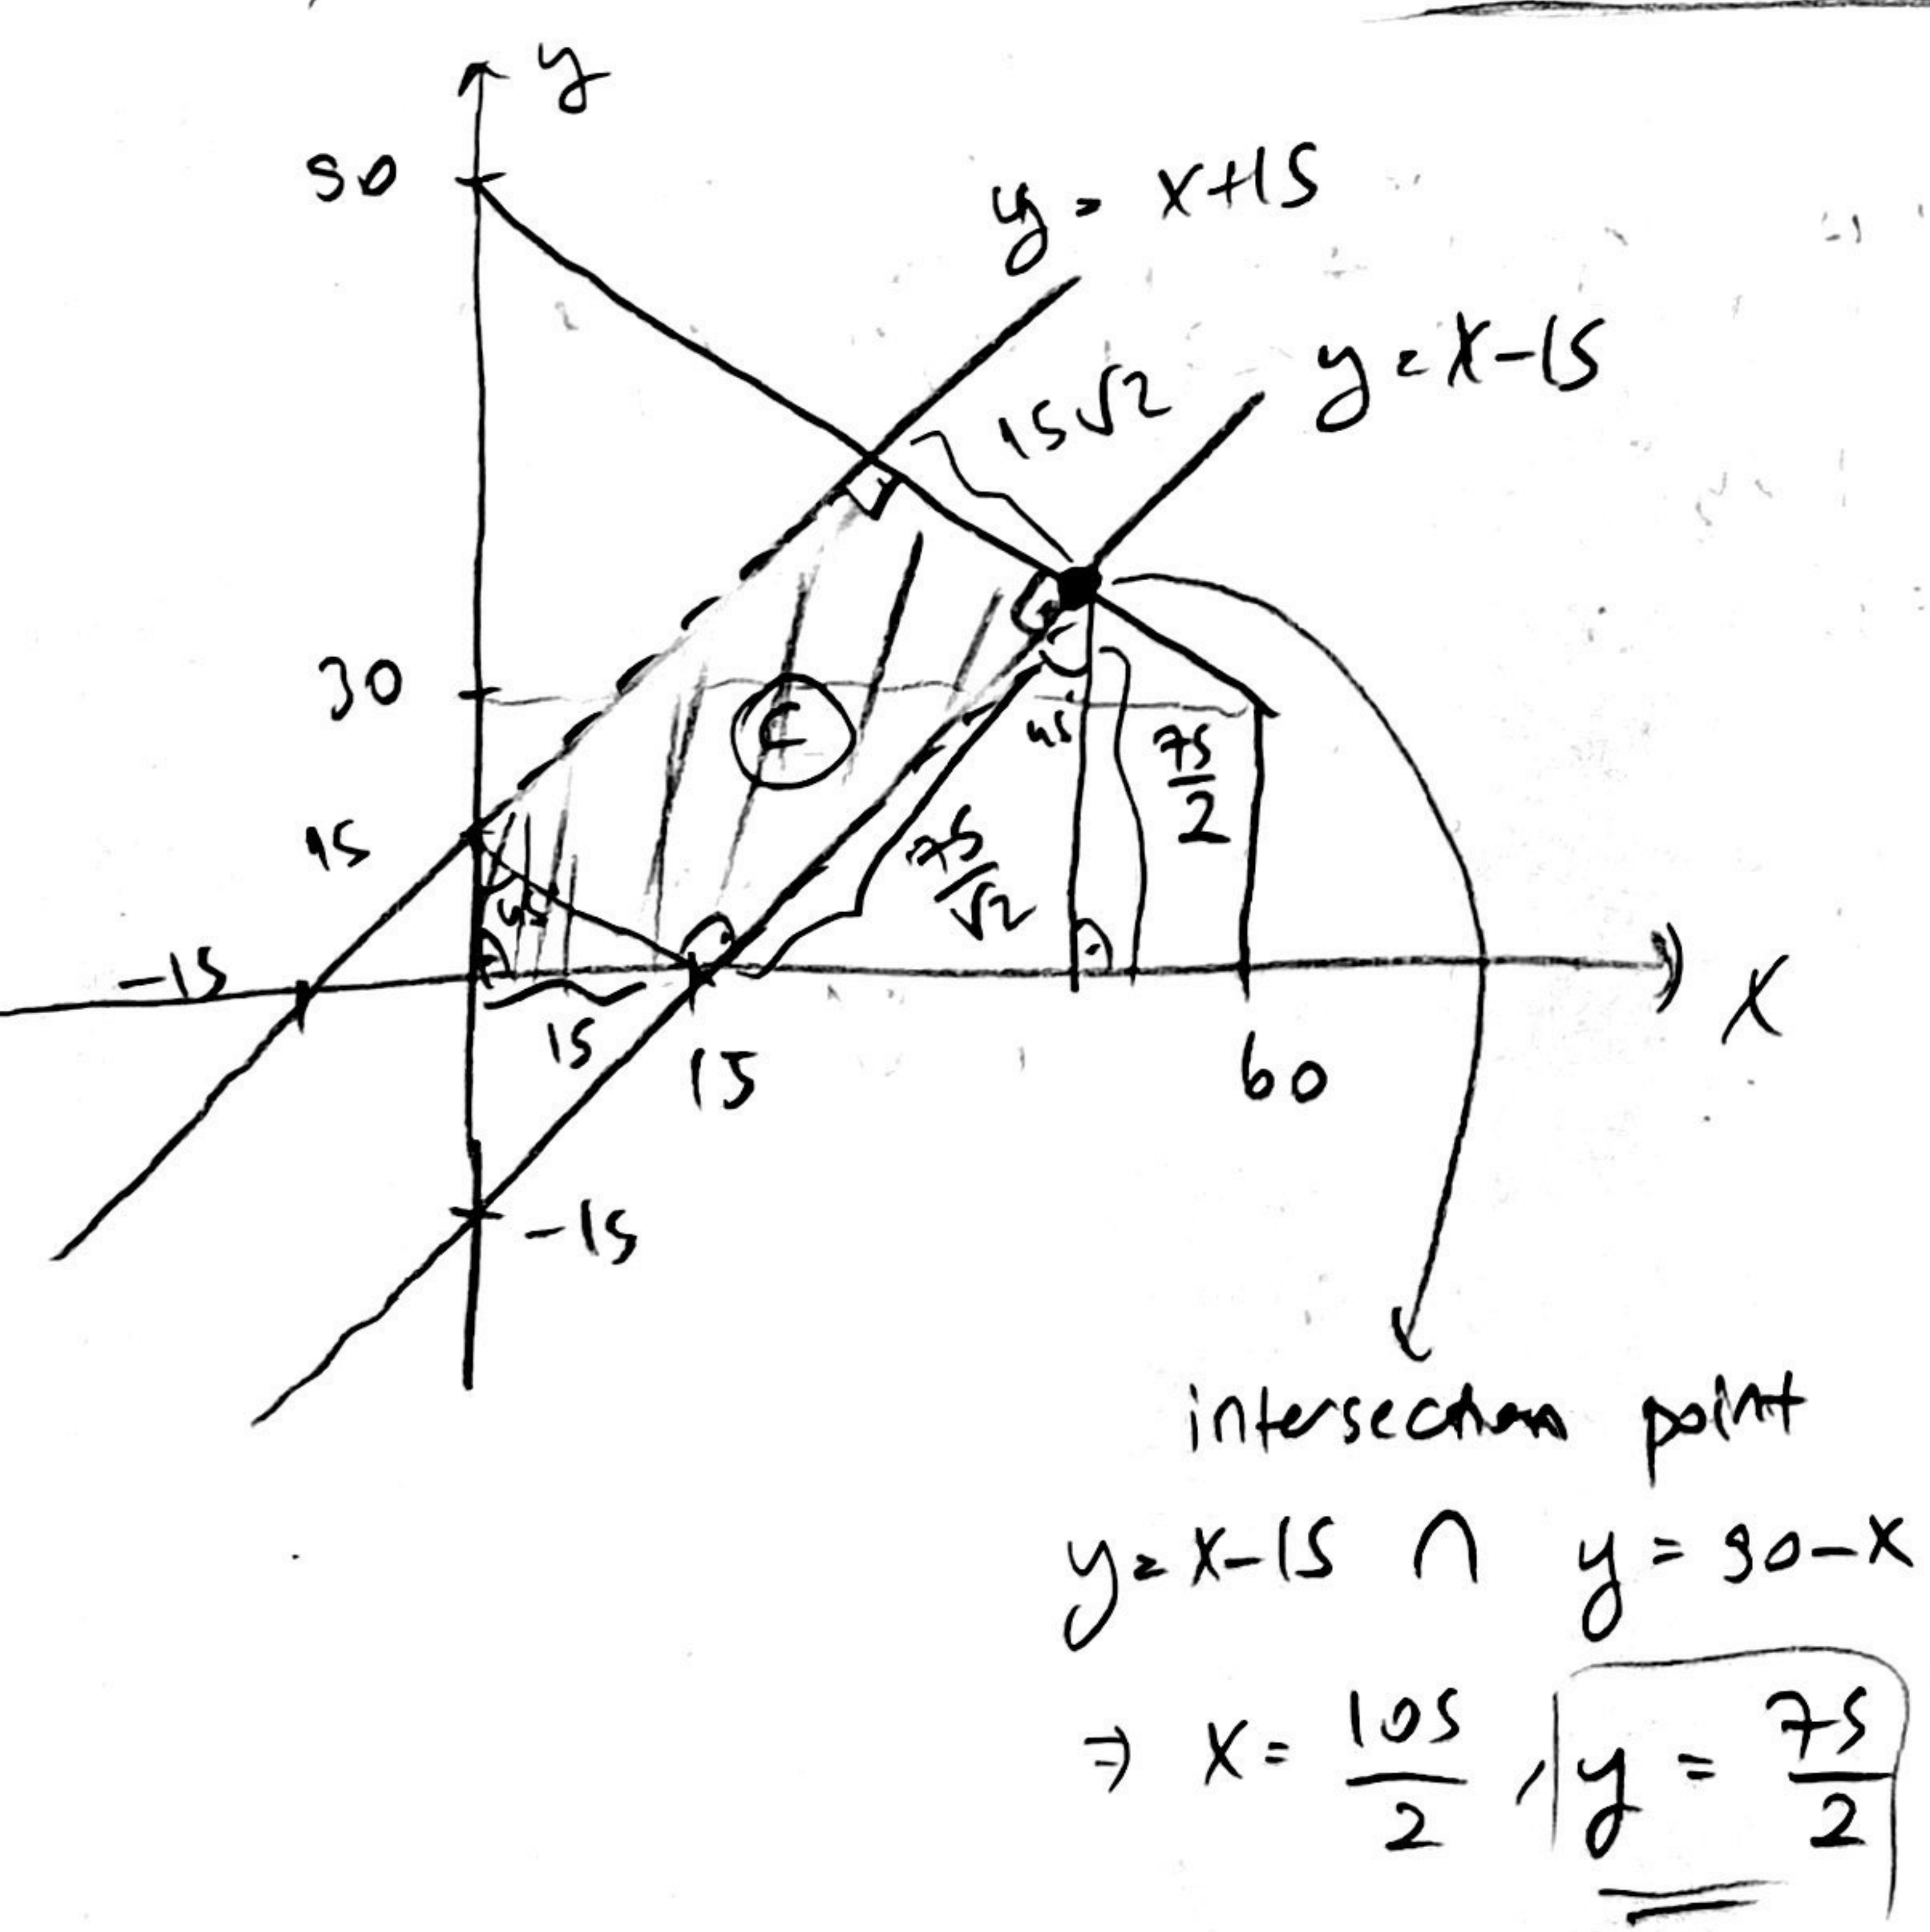 y
90
y = x+15
y = x-15
15√2
30
C
45
75/2
15
45
75/√2
-15
x
15
15
60
-15
intersection point
y = x-15 ∩ y = 90-x
⇒ x = 105/2, y = 75/2